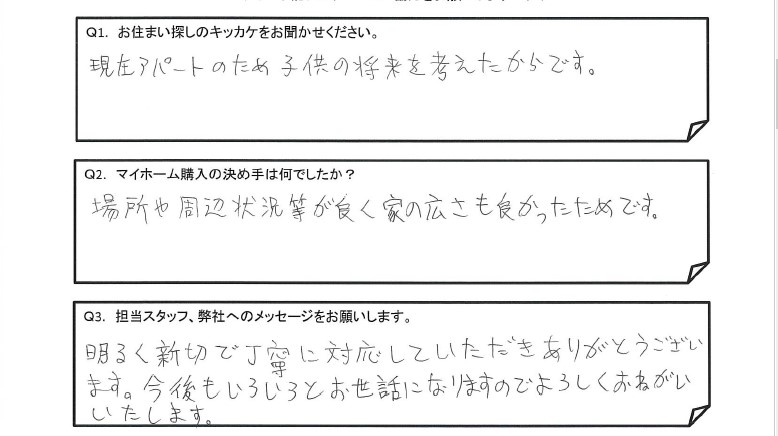 Q1. お住まい探しのキッカケをお聞かせください。
現在アパートのため子供の将来を考えたからです。
Q2. マイホーム購入の決め手は何でしたか？
場所や周辺状況等が良く家の広さも良かったためです。
Q3. 担当スタッフ、弊社へのメッセージをお願いします。
明るく新切で丁寧に対応していただきありがとうござい
ます。今後もいろいろとお世話になりますのでよろしくおねがい
いたします。